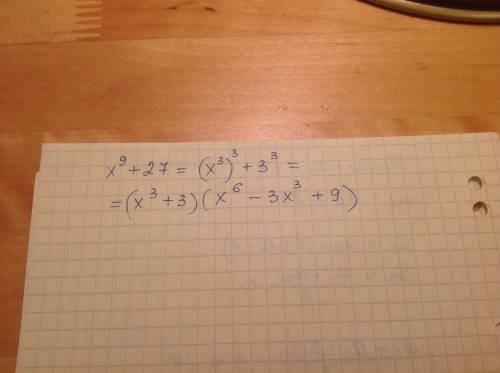 x⁹ + 27 = (x³)³ + 3³ =
= (x³ + 3)(x⁶ − 3x³ + 9)